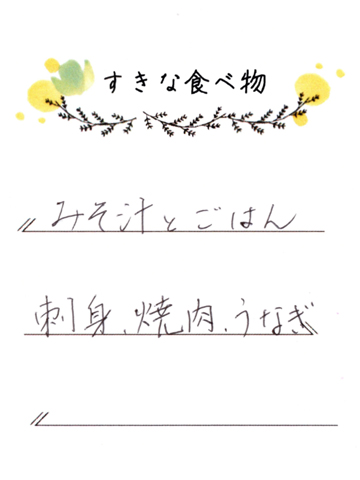 すきな食べ物
みそ汁とごはん
刺身、焼肉、うなぎ